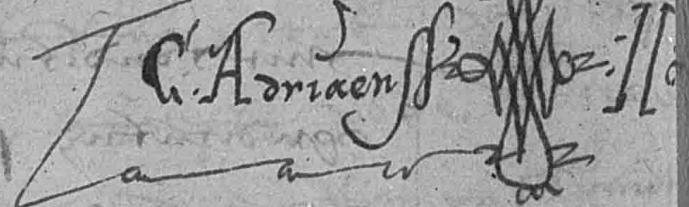 C. Adriaenss